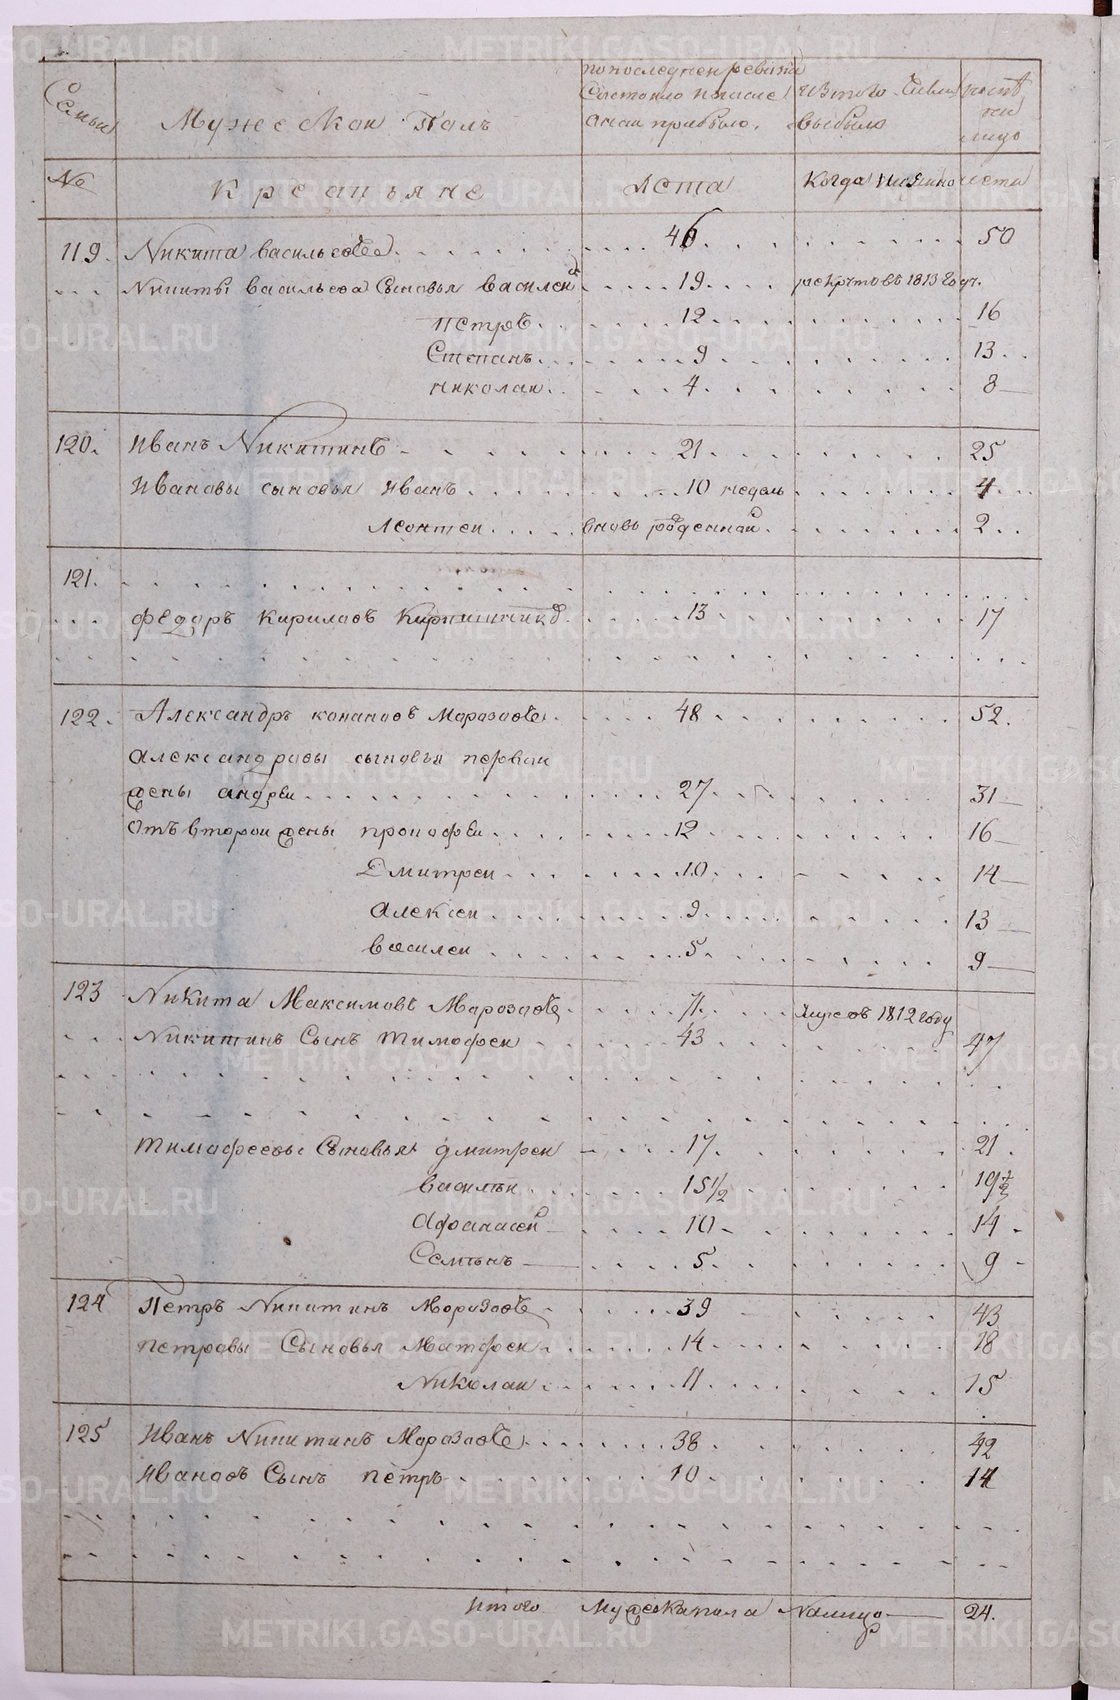 Семьи Мужескои Полъ по последнеи ревизи Состояло и после онаи прибыло. Изтого Числа выбыло ныне на лицо
№ Крестьяне Лета Когда имянно лета
119. Никита васильевъ 46 50
Никиты васильева Сыновья василеи 19 рекрутовъ 1813 году.
петръ 12 16
Степанъ 9 13
николаи 4 8
120. Иванъ Никитинъ 21 25
Ивановы сыновья иванъ 10 недель 4
леонтеи вновь рожденнаи 2
121.
федоръ кириловъ 13 17
122. Александръ конановъ Морозовъ 48 52.
александровы сыновья первои
жены андреи 27 31
Отъ второи жены прокофеи 12 16
Дмитреи 10 14
Алексеи 9 13
василеи 5 9
123 Никита Максимовъ Марозовъ 71 умре въ 1812 году
Никитинъ Сынъ тимофеи 43 47
тимофеевы Сыновья дмитреи 17 21
василеи 15 1/2 19 1/2
Афонасеи 10 14
Семенъ 5 9
124 Петръ Никитинъ Морозовъ 39 43
петровы Сыновья Матфеи 14 18
Николаи 11 15
125 Иванъ Никитинъ Морозовъ 38 42
ивановъ Сынъ петръ 10 14
итого Мужескапола Налицо 24.
METRIKI.GASO-URAL.RU